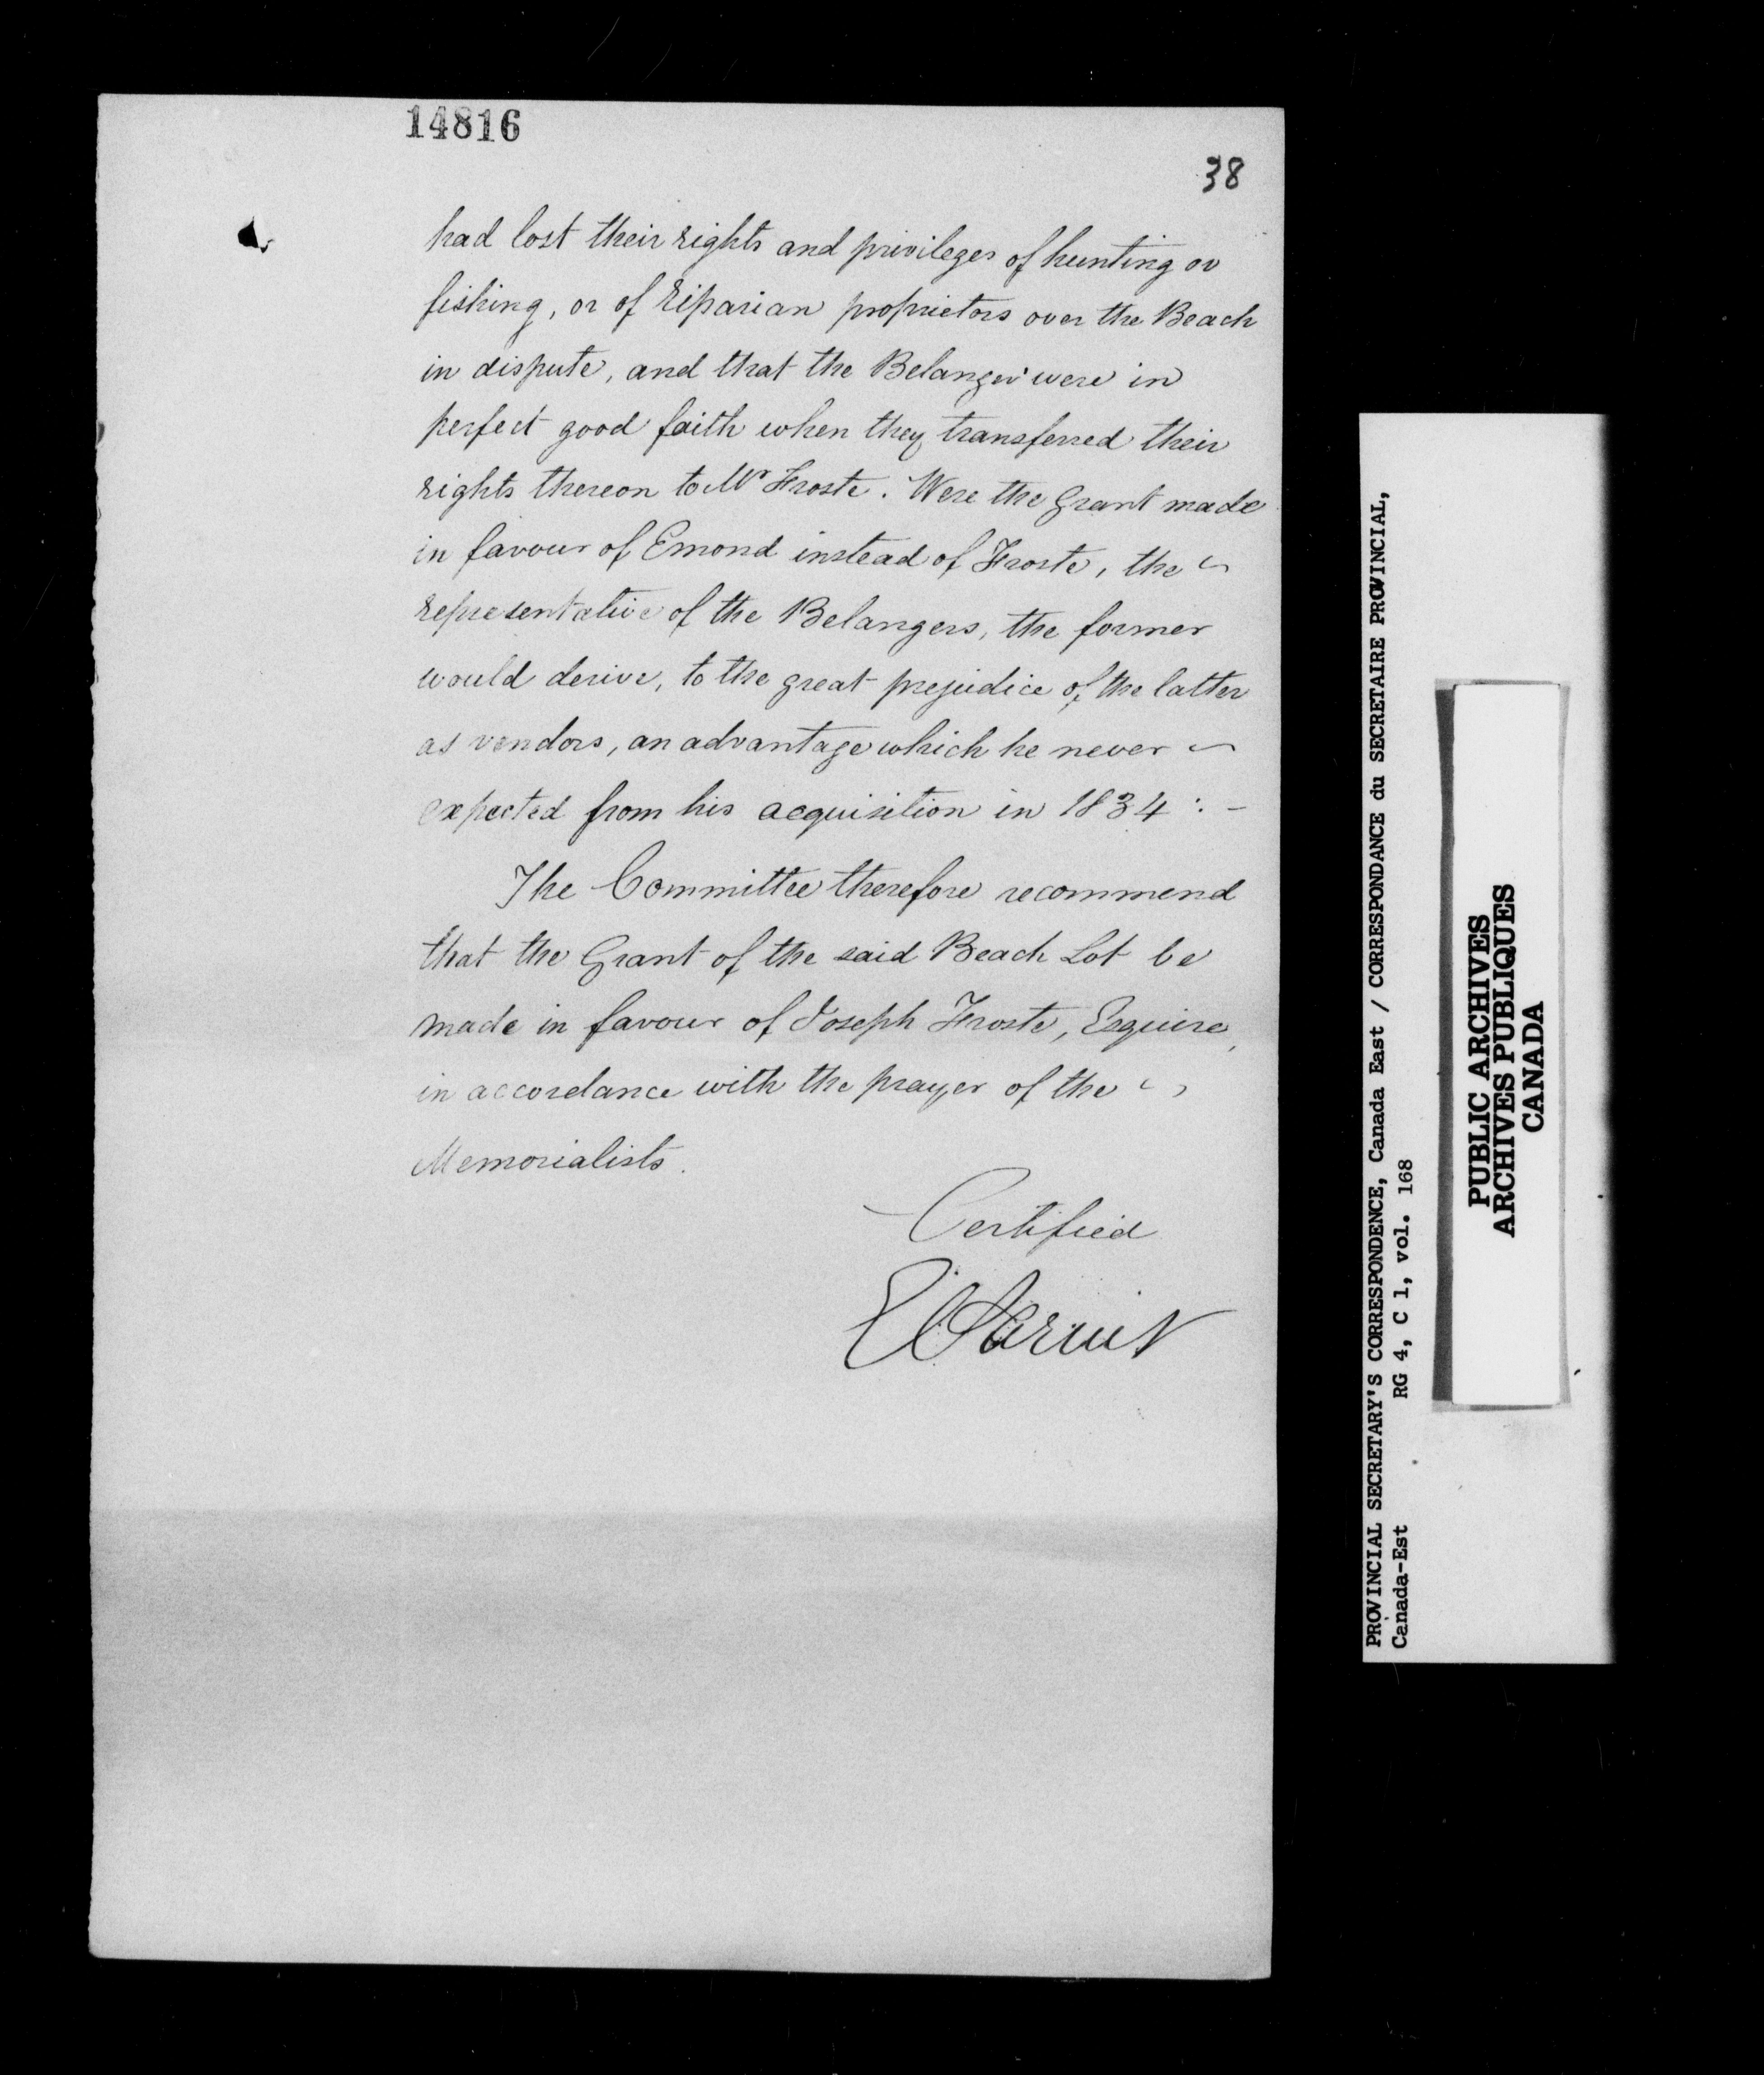 14816
38
had lost their rights and privileges of hunting or
fishing, or of riparian proprietors over the Beach
in dispute, and that the Belangers were in
perfect good faith when they transferred their
rights thereon to Mr Froste. Were the Grant made
in favour of Emond instead of Froste, the
representative of the Belangers, the former
would derive, to the great prejudice of the latter
as vendors, an advantage which he never
expected from his acquisition in 1834 : -
The Committee therefore recommend
that the Grant of the said Beach Lot be
made in favour of Joseph Froste, Esquire,
in accordance with the prayer of the
Memorialists.
Certified
PROVINCIAL SECRETARY'S CORRESPONDENCE, Canada East / CORRESPONDANCE du SECRETAIRE PROVINCIAL,
Canada-Est RG 4, C 1, vol. 168
PUBLIC ARCHIVES
ARCHIVES PUBLIQUES
CANADA